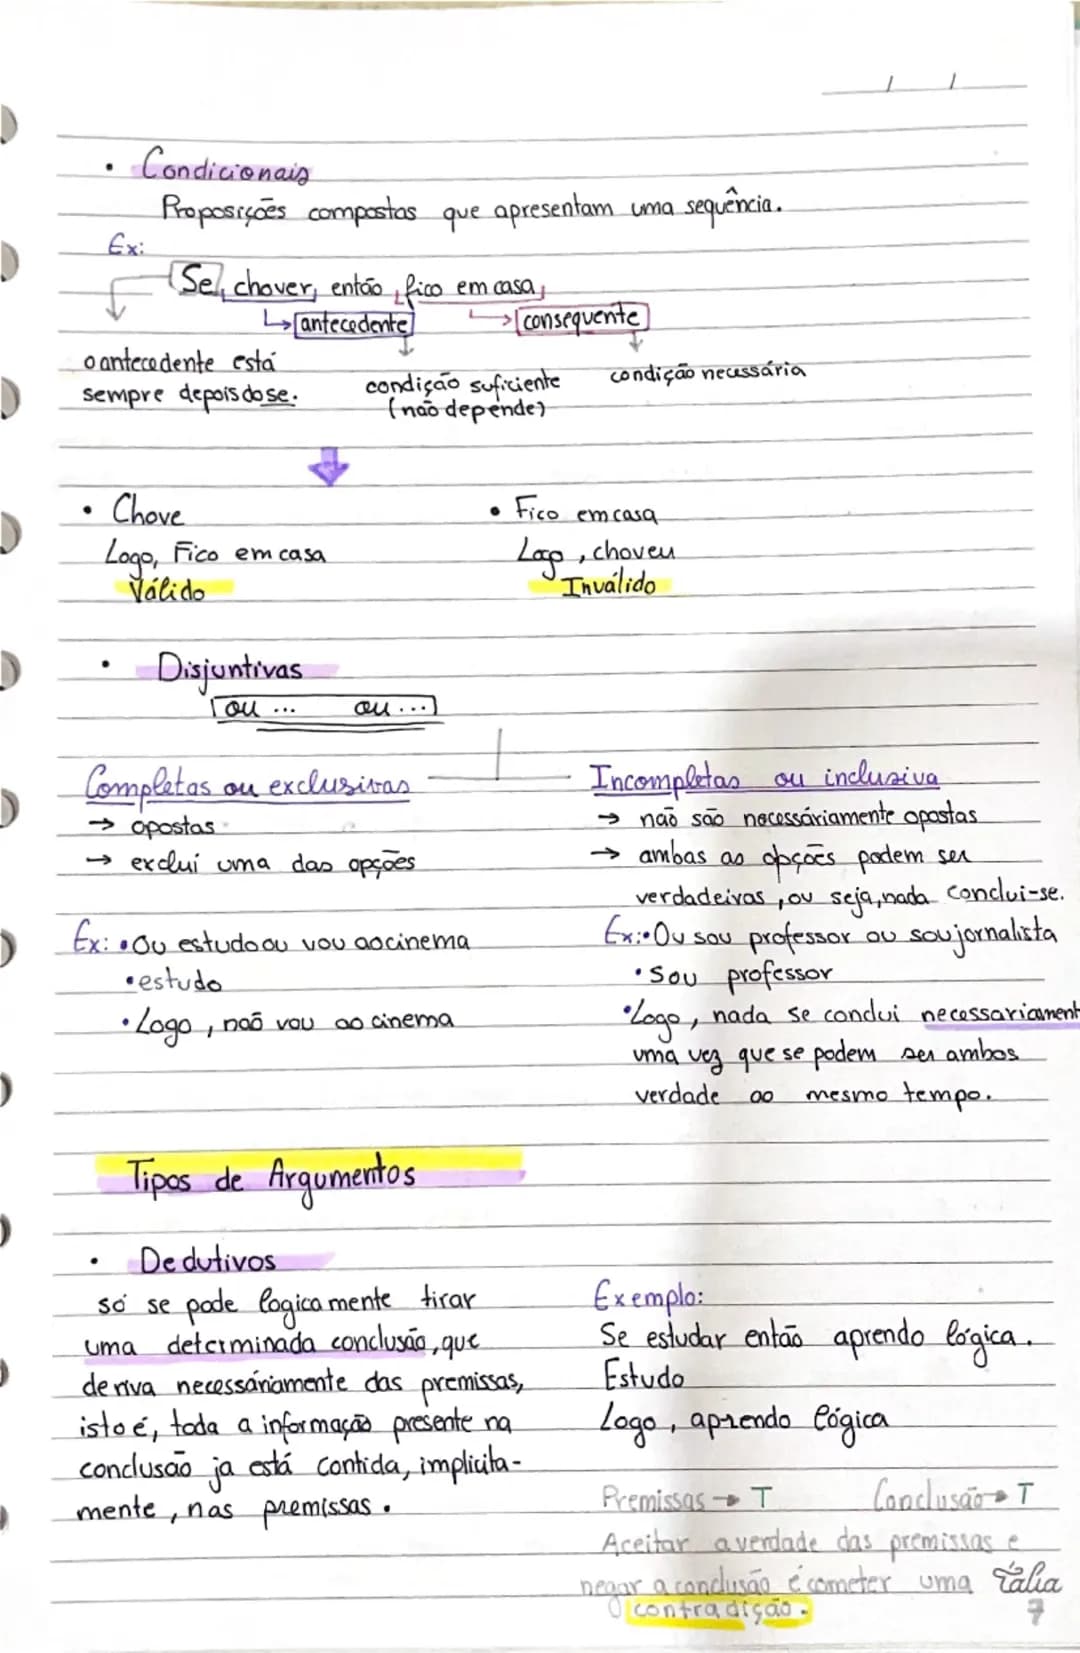 / /
• Condicionais
Proposições compostas que apresentam uma sequência.
Ex:
Se, chover, então, fico em casa,
antecedente
consequente
o antecedente está
sempre depois do se.
condição suficiente
(não depende)
condição necessária
• Chove
Logo, Fico em casa
Válido
• Fico em casa
Logo, choveu
Inválido
• Disjuntivas
ou ... ou ...
Completas ou exclusivas
→ opostas
→ exclui uma das opções
Ex: • Ou estudo ou vou ao cinema
• estudo
• Logo, não vou ao cinema
Incompletas ou inclusiva
→ não são necessáriamente opostas
→ ambas as opções podem ser
verdadeiras, ou seja, nada conclui-se.
Ex: • Ou sou professor ou sou jornalista
• Sou professor
• Logo, nada se conclui necessariament
uma vez que se podem ser ambos
verdade ao mesmo tempo.
Tipos de Argumentos
• Dedutivos
só se pode logicamente tirar
uma determinada conclusão, que
deriva necessáriamente das premissas,
isto é, toda a informação presente na
conclusão ja está contida, implicita-
mente, nas premissas.
Exemplo:
Se estudar então aprendo lógica.
Estudo
Logo, aprendo lógica
Premissas → T Conclusão → T
Aceitar a verdade das premissas e
negar a conclusão é cometer uma
contradição.
Tália
7